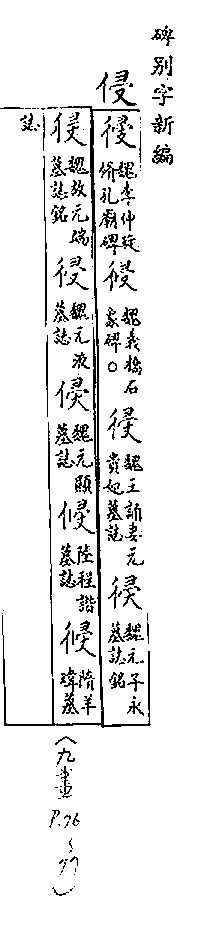 碑別字新編
侵
侵魏李仲琁脩孔廟碑侵魏義橋石象碑○侵魏王誦妻元貴妃墓誌侵魏元子永墓誌銘
侵魏故元瑞墓誌銘侵魏元液墓誌侵魏元頤墓誌侵陸程諧墓誌侵隋羊瑋墓
誌
〈九畫 P.76~77〉